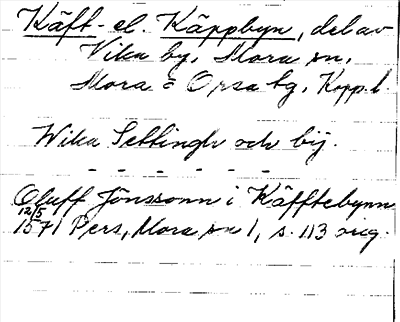 Käft- el. Käppbyn, del av
Vika by, Mora sn,
Mora o Orsa tg, Kopp. l.
Wika Settingh och bÿ.
Oluff Jönssonn i Käfftebynn
12/5 1571 Pers, Mora sn 1, s. 113 orig.